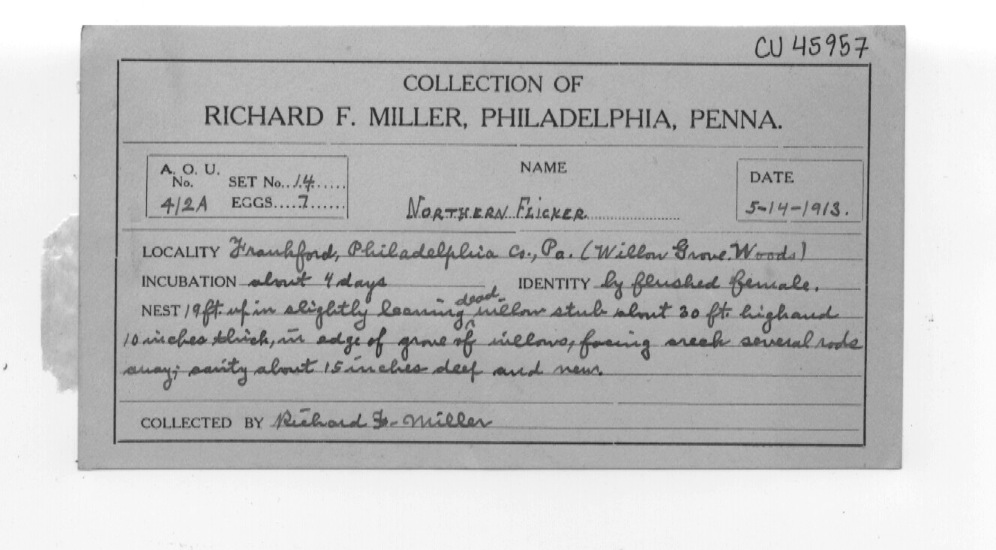 CU 45957
COLLECTION OF
RICHARD F. MILLER, PHILADELPHIA, PENNA.
A. O. U. No. 412A
SET No. 14
EGGS 7
NAME
NORTHERN FLICKER
DATE
5-14-1913.
LOCALITY Frankford, Philadelphia Co., Pa. (Willow Grove Woods)
INCUBATION about 4 days IDENTITY by flushed female.
NEST 19 ft. up in slightly leaning dead willow stub about 30 ft. high and
10 inches thick, in edge of grove of willows, facing creek several rods
away; cavity about 15 inches deep and new.
COLLECTED BY Richard F. Miller